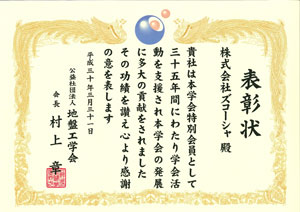 表彰状
株式会社ズコーシャ 殿
貴社は本学会特別会員として
三十五年間にわたり学会活
動を支援され本学会の発展
に多大の貢献をされました
その功績を讃え心より感謝
の意を表します
平成三十年三月三十一日
公益社団法人 地盤工学会
会長 村上 章